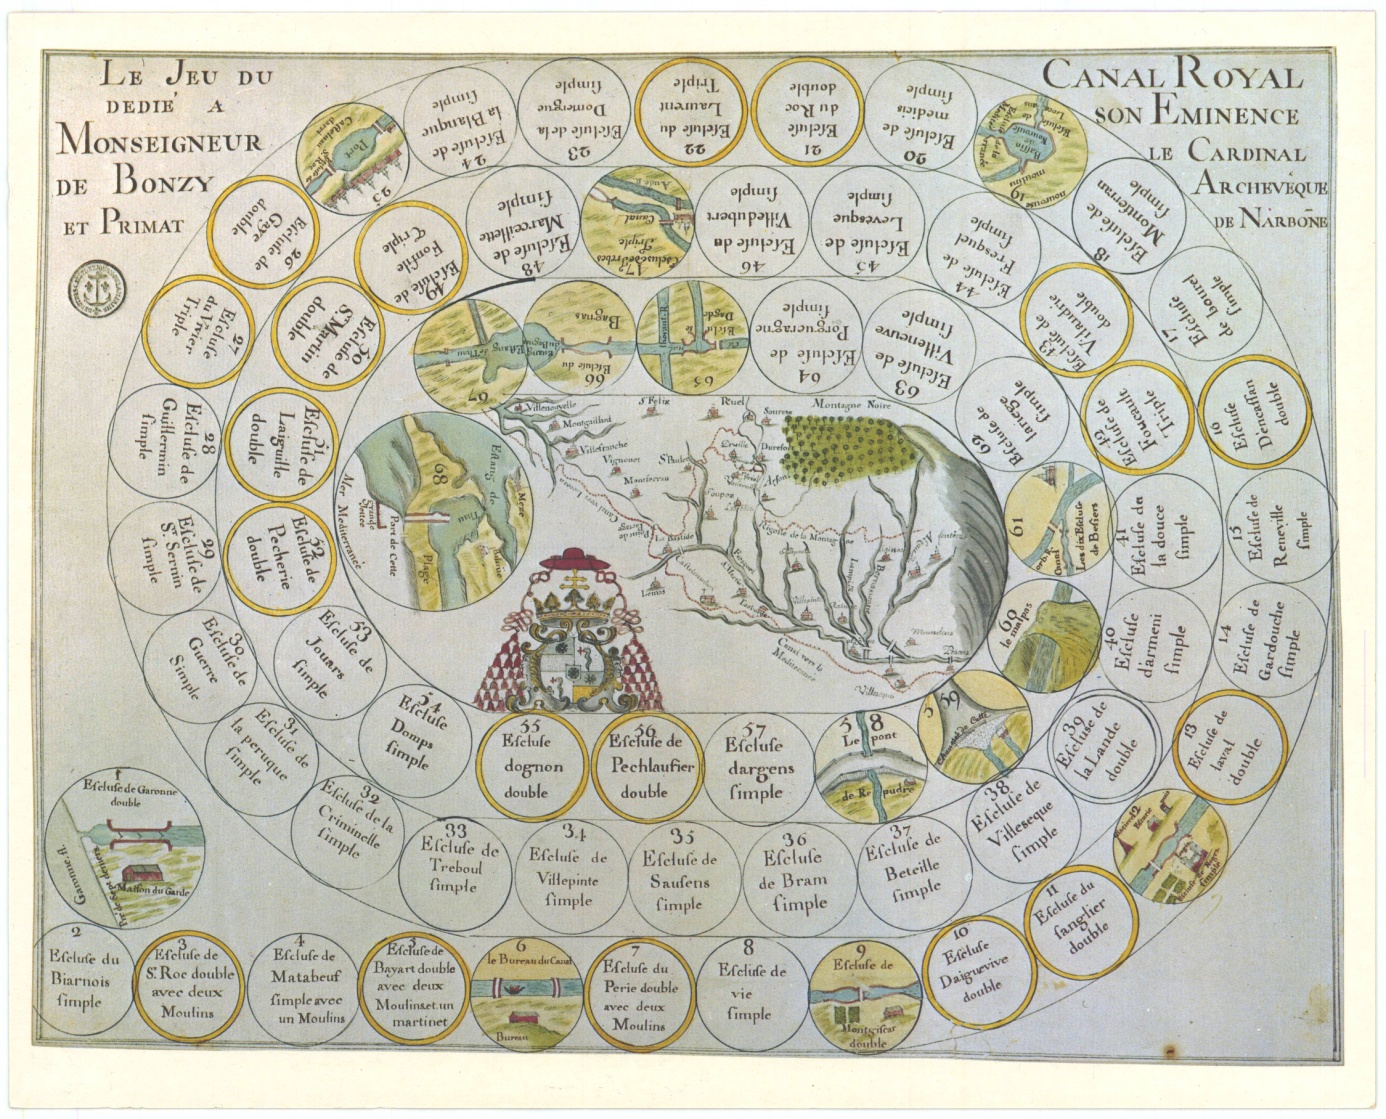 LE JEU DU
DEDIE A
MONSEIGNEUR
DE BONZY
ET PRIMAT
CANAL ROYAL
SON EMINENCE
LE CARDINAL
ARCHEVÊQUE
DE NARBOÑE
1
Eſcluſe de Garonne
double
Garonne. fl.
Maiſon du Garde
2
Eſcluſe du
Biarnois
ſimple
3
Eſcluſe de
St. Roc double
avec deux
Moulins
4
Eſcluſe de
Matabeuf
ſimple avec
un Moulins
5
Eſcluſe de
Bayart double
avec deux
Moulins et un
martinet
6
le Bureau du Canal
Bureau
7
Eſcluſe du
Perie double
avec deux
Moulins
8
Eſcluſe de
vic
ſimple
9
Eſcluſe de
Montgiſcar
double
10
Eſcluſe
Daiguevive
double
11
Eſcluſe du
ſanglier
double
12
ſimple
13
Eſcluſe de
laval
double
14
Eſcluſe de
Gardouche
ſimple
15
Eſcluſe de
Reneville
ſimple
16
Eſcluſe
Dencaſſan
double
17
Eſcluſe
de bourel
ſimple
18
Eſcluſe de
Monterran
ſimple
19
Baſſin
de
Nourouſe
moulin
nourouse
20
Eſcluſe de
medicis
ſimple
21
Eſcluſe
du Roc
double
22
Eſcluſe du
Laurent
Triple
23
Eſcluſe de la
Domergue
ſimple
24
Eſcluſe de
la Planque
ſimple
25
Port
26
Eſcluſe de
Gaye
double
27
Eſcluſe
du Vivier
Triple
28
Eſcluſe de
Guillermin
ſimple
29
Eſcluſe de
St. Sernin
ſimple
30
Eſcluſe de
Guerre
Simple
31
Eſcluſe de
la peruque
ſimple
32
Eſcluſe de la
Criminelle
ſimple
33
Eſcluſe de
Treboul
ſimple
34
Eſcluſe de
Villepinte
ſimple
35
Eſcluſe de
Sauſens
ſimple
36
Eſcluſe
de Bram
ſimple
37
Eſcluſe de
Beteille
ſimple
38
Eſcluſe de
Villeſeque
ſimple
39
Eſcluſe de
la Lande
double
40
Eſcluſe
d'armeni
ſimple
41
Eſcluſe da
la douce
ſimple
42
Eſcluſe de
Foucault
Triple
43
Eſcluſe de
Villaudric
double
44
Eſcluſe de
Freſquel
ſimple
45
Eſcluſe de
Leveſque
ſimple
46
Eſcluſe du
Villedubert
ſimple
Eſcluſe de Trebes
Triple
Canal
Aude R.
48
Eſcluſe de
Marceillette
ſimple
49
Eſcluſe de
Fonfile
Triple
50
Eſcluſe de
St. Martin
double
51
Eſcluſe de
Laiguille
double
52
Eſcluſe de
Pecherie
double
53
Eſcluſe de
Jouars
ſimple
54
Eſcluſe
Domps
ſimple
55
Eſcluſe
dognon
double
56
Eſcluſe de
Pechlauſier
double
57
Eſcluſe
dargens
ſimple
58
Le pont
de Repudre
59
60
le malpas
61
orb R.
Canal
Les dix Eſcluſe
de Beſiers
62
Eſcluſe de
lariege
ſimple
63
Eſcluſe de
Villeneuve
ſimple
64
Eſcluſe de
Porgueragne
ſimple
65
66
Eſcluſe du
Bagnas
67
68
Mer Mediterranée
Grande
Jettée
Port de Cette
Plage
Etang de
Thau
Meze
Villenouvelle
Montgaillard
Villefranche
Vignonet
St. Felix
Revel
Soureze
Montagne Noire
Durefort
St. Paulet
Castelnaudary
Rigolle de la Montagne
Canal vers la
Mediterranée